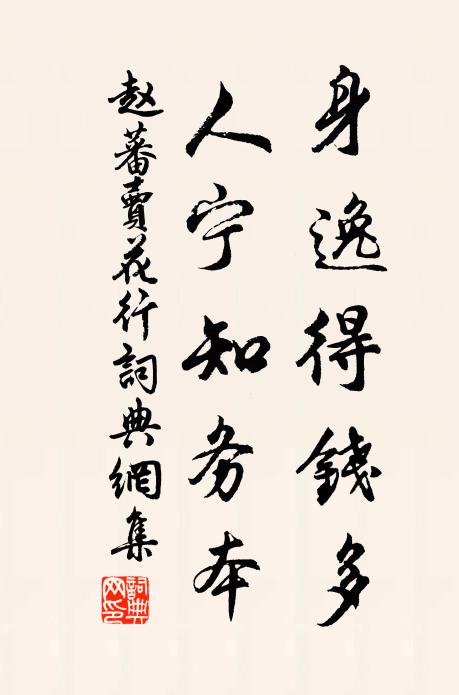 身逸得錢多
人宁知务本
赵蕃賣花行詞典網集
詞典
网印